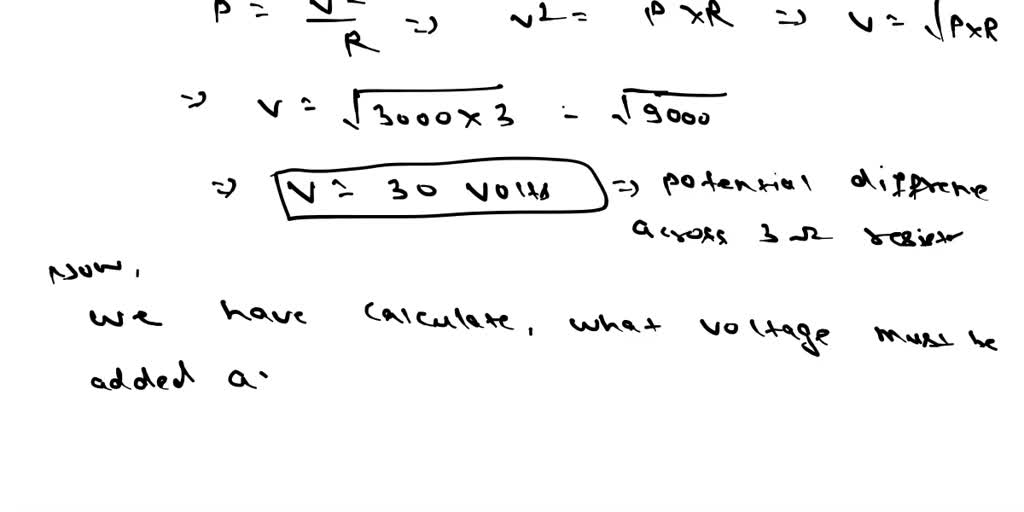 P = V²/R => V² = P×R => V = √P×R
=> V = √3000×3 = √9000
=> V = 30 Volts => potential differene
across 3 Ω resister
Now,
we have calculate, what voltage must be
added a